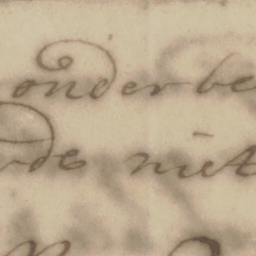 onder be
rde niet